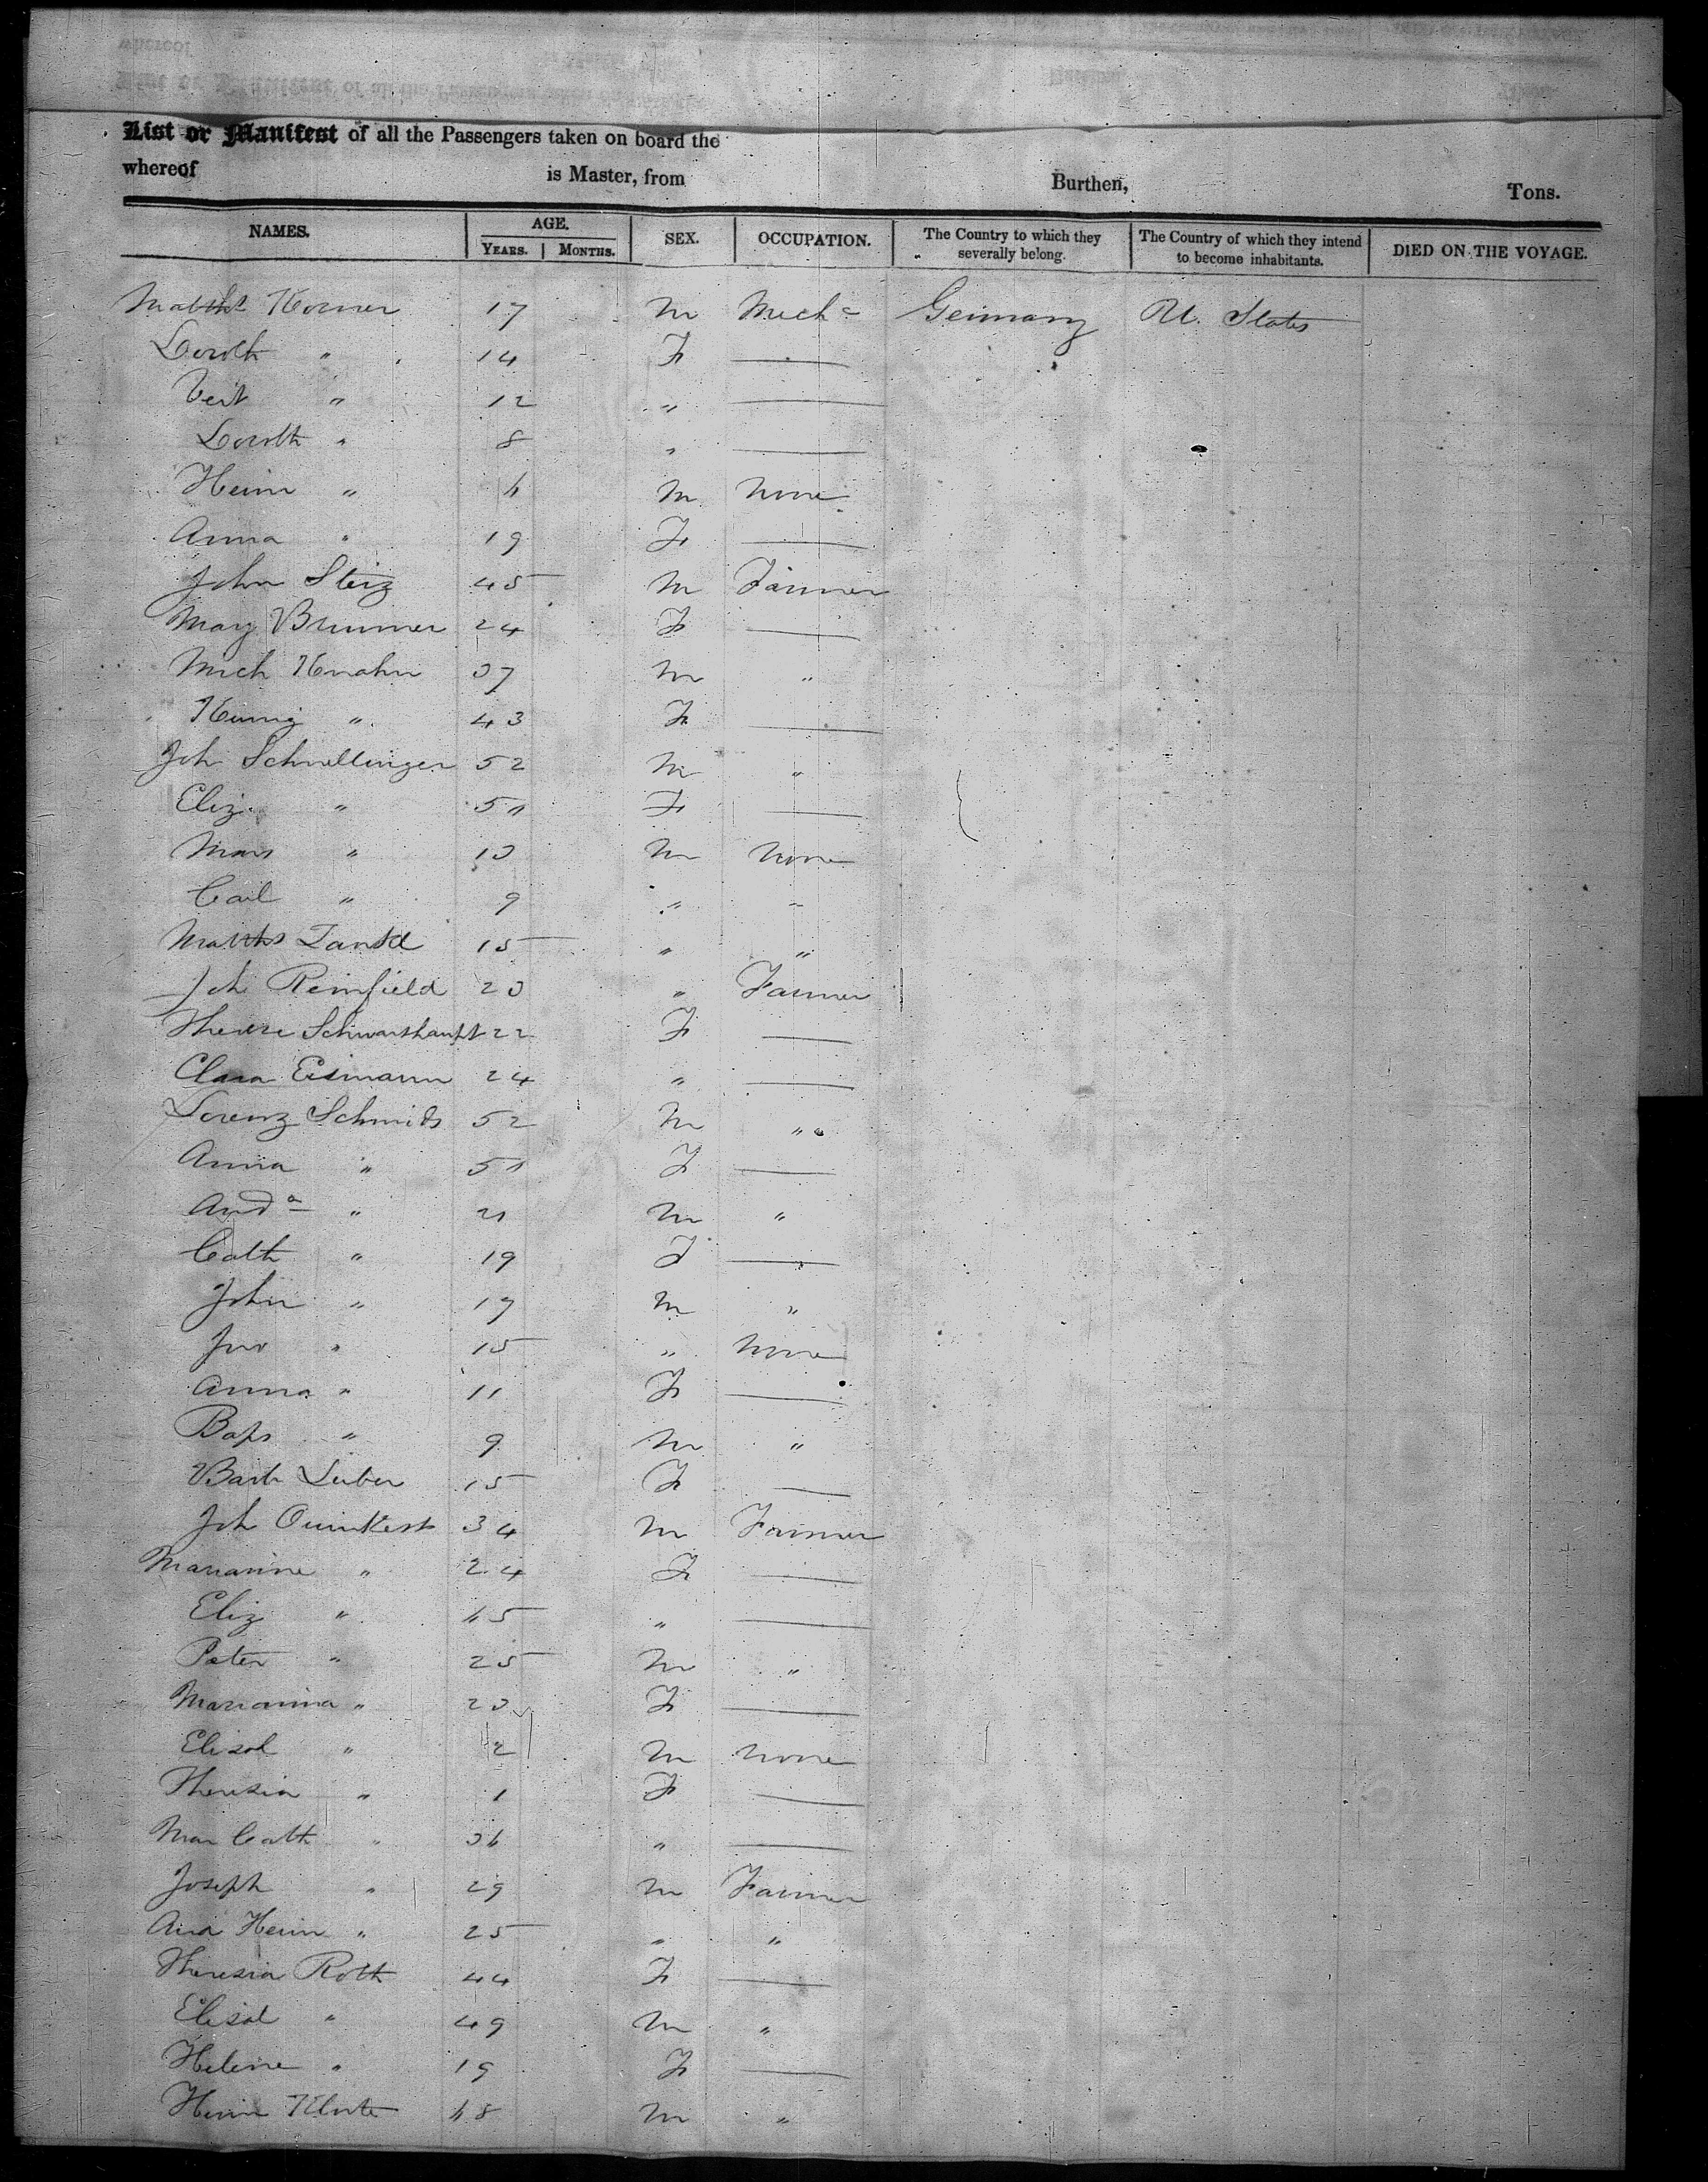 List or Manifest of all the Passengers taken on board the
whereof is Master, from Burthen, Tons.
NAMES. AGE. SEX. OCCUPATION. The Country to which they severally belong. The Country of which they intend to become inhabitants. DIED ON THE VOYAGE.
YEARS. MONTHS.
Matths Korner 17 M Mechc Germany U. States
Doroth " 14 F —
Veit " 12 " —
Doroth " 8 " —
Heinr " 6 M None
Anna " 19 F —
John Steiz 45 M Farmer
Mary Brunner 24 F —
Mich Knahn 37 M "
Kunig " 43 F —
Joh Schnellinger 52 M "
Eliz " 50 F —
Mars " 13 M None
Carl " 9 " "
Matths 15 " "
Joh Reinfield 23 " Farmer
Therese Schwarzhaupt 22 F —
Clara Eismann 24 " —
Lorenz Schmids 52 M "
Anna " 51 F —
Anda " 21 M "
Cath " 19 F —
John " 17 M "
Jno " 15 " None
Anna " 11 F —
Baps " 9 M "
Barb Luber 15 F —
Joh Quinkest 34 M Farmer
Marianne " 24 F —
Eliz " 65 " —
Peter " 25 M "
Marianna " 23 F —
" 2 M None
Theresia " 1 F —
Mar Cath " 36 " —
Joseph " 29 M Farmer
And Heinr " 25 " "
Theresia Roth 44 F —
" 49 M "
Helene " 19 F —
Heinr Klute 68 M "